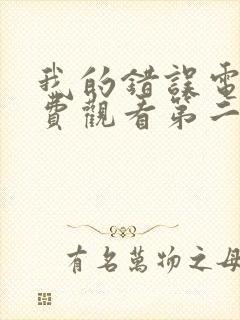 我的錯誤電
費觀看第二
有名萬物之母